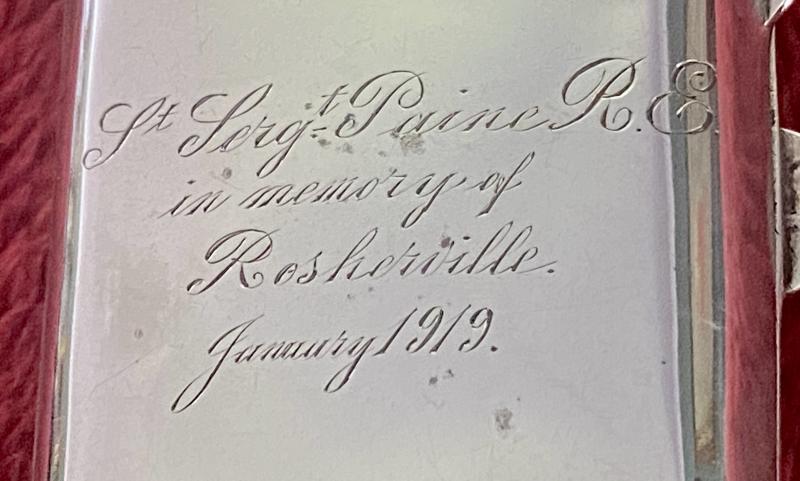 St Sergt Paine R.E
in memory of
Rosherville.
January 1919.